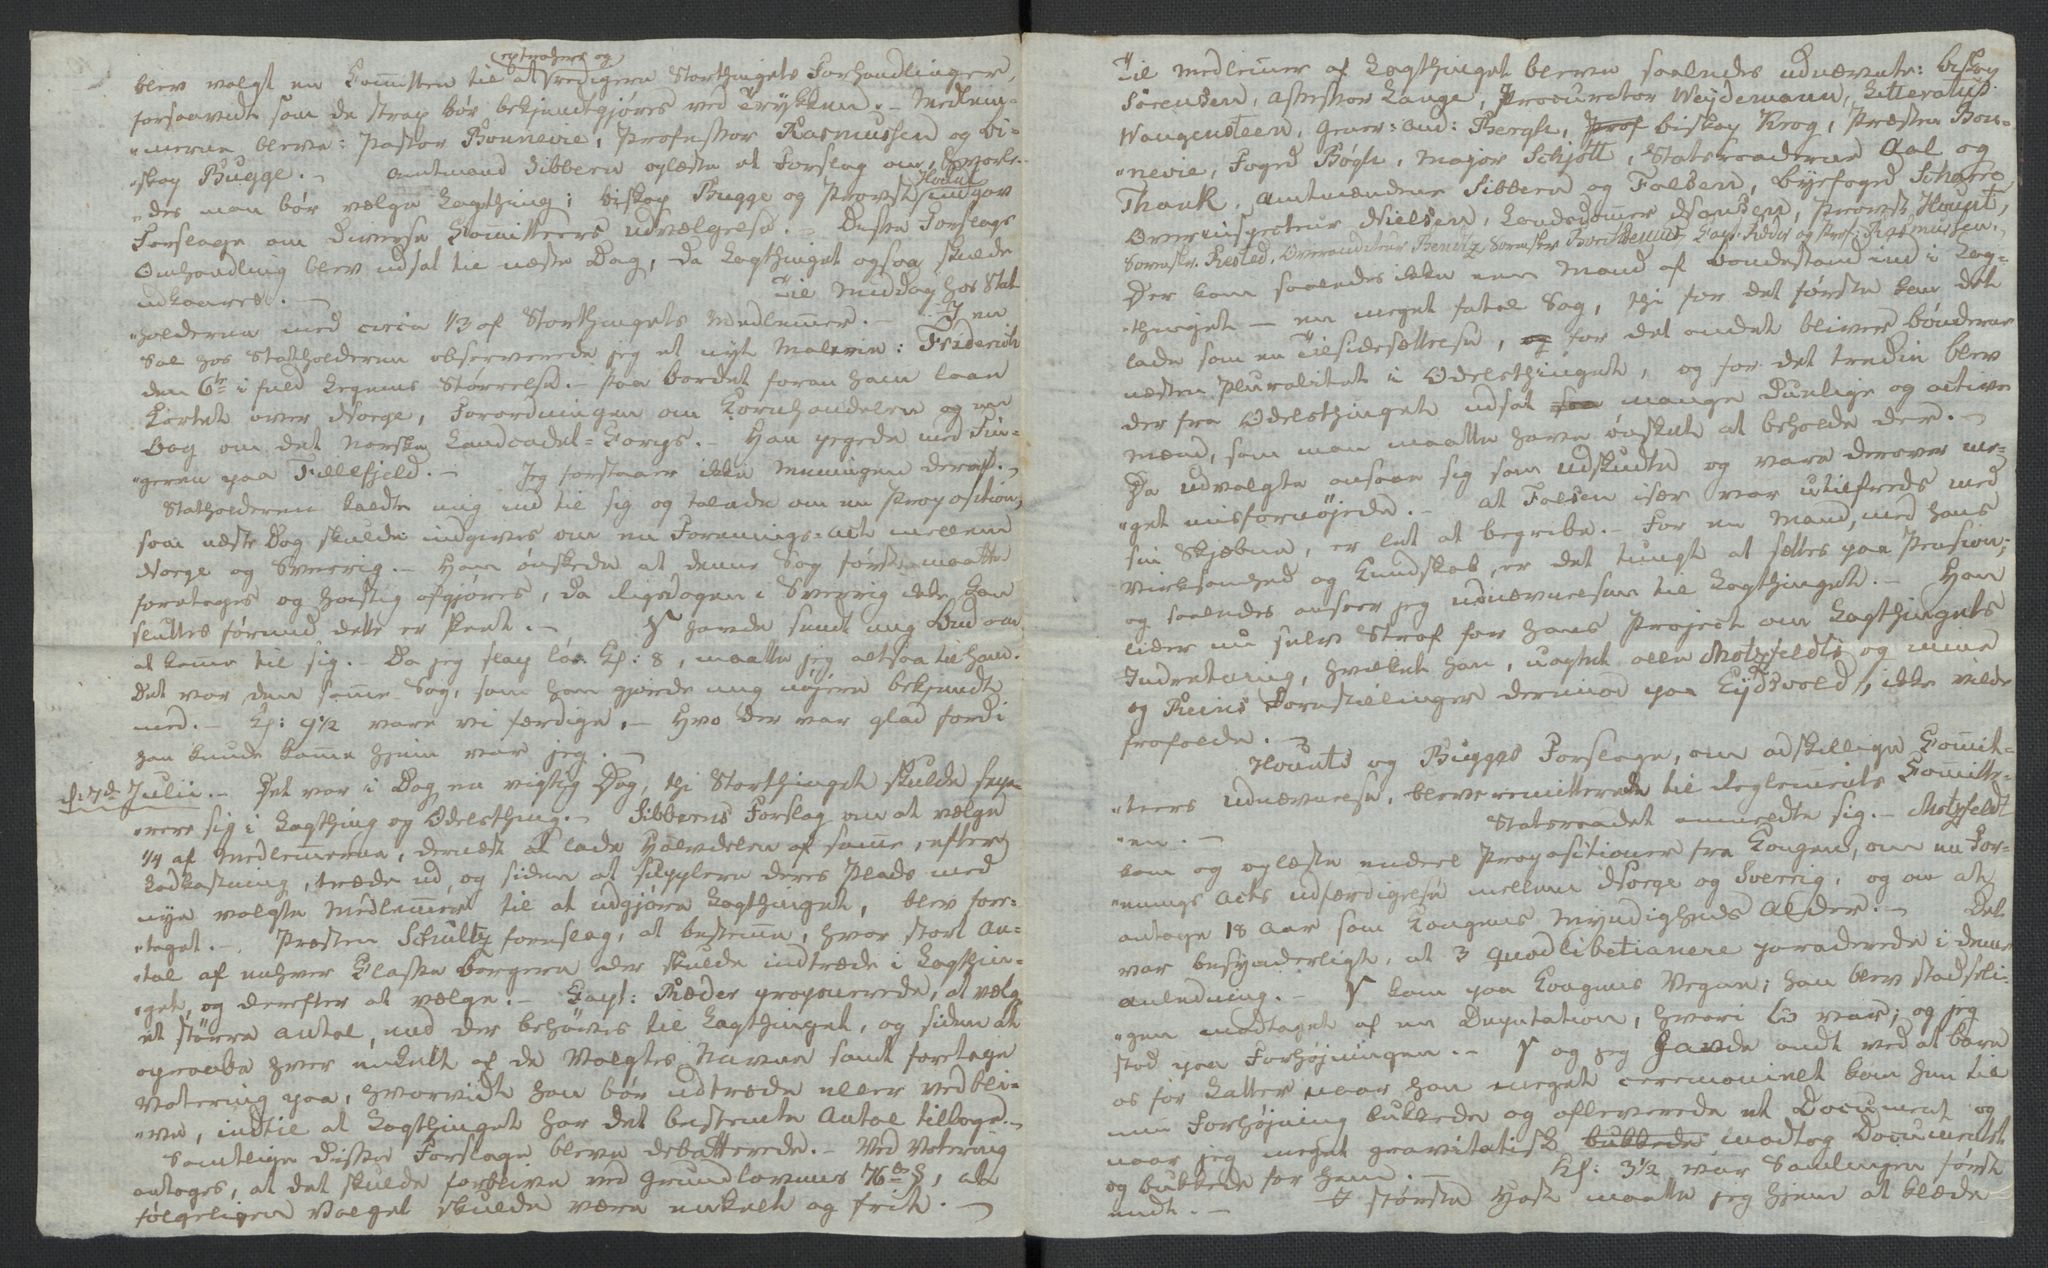 extrahere og
blev valgt en Comitteen til at redigere Storthingets Forhandlinger,
forsaavidt som de strax bør bekjendtgjøres ved Trykken. – Medlem-
"merne bleve: Pastor Bonnevie, Professor Rasmussen og Bi-
"skop Bugge. – Amtmand Sibbern oplæste et Forslag om, hvorle-
"des man bør vælge Lagthing; biskop Bugge og Provst Hount
Forslage om diverse Comitteers udvælgelse. – Disse Forslags
Omhandling blev udsat til næste Dag, da Lagthinget ogsaa skulde
udkaares. – Til Middag hos Stat-
"holderen med circa 1/3 af Storthingets Medlemmer. – I en
Sal hos Statholderen observerede jeg et nyt Malerie: Friderich
den 6te i fuld Legems Størrelse. – Paa bordet foran ham laae
Kortet over Norge, Forordningen om Kornhandelen og en
Bog om det norske Landcadet-Corps. – Han pegede med Fin-
"geren paa Fillefjeld. – Jeg forstaaer ikke Meningen deraf. –
Statholderen kaldte mig ind til sig og talede om en Proposition,
som næste Dag skulde indgives om en Forenings-Act mellem
Norge og Sverrig. – Han ønskede at denne Sag først maatte
foretages og hastig afgjøres, da Rigsdagen i Sverrig ikke kan
sluttes førend dette er skeet. – havde sendt mig Bud om
at komme til sig. – Da jeg slap løs Kl: 8, maatte jeg altsaa til ham.
Det var den samme Sag, som han gjorde mig nøjere bekjendt
med. – Kl: 9 1/2 vare vi færdige. – Hvo der var glad fordi
han kunde komme hjem var jeg. –
d: 7de Julii. – Det var i Dag en vigtig Dag, thi Storthinget skulde sepe-
"rere sig i Lagthing og Odelsthing. – Sibberns Forslag om at vælge
1/4 af Medlemmerne, dernæst at lade Halvdelen af samme, efter
Lodkastning, træde ud, og siden at supplere deres Plads med
nye valgte Medlemmer til at udgjøre Lagthinget, blev fore-
"taget. – Præsten Schultz foreslog, at bestemme, hvor stort An-
"tal af enhver Klasse borgere der skulde indtræde i Lagthin-
"get, og derefter at vælge. – Capt: Ræder proponerede, at vælge
et større Antal, end der behøves til Lagthinget, og siden at
opraabe hver enkelt af de Valgtes Navne samt foretage
Votering paa, hvorvidt han bør udtræde eller vedbli-
"ve, indtil at Lagthinget har det bestemte Antal tilbage. –
Samtlige disse Forslage bleve debatterede. – Ved Votering
antoges, at det skulde forblive ved Grundlovens 76de §, at
følgeligen Valget skulde være enkelt og frit. –
Til Medlemmer af Lagthinget bleve saaledes udnævnte: biskop
Sörensen, Assessor Lange, Procurator Weydemann, Litteratus
Wangensteen, Gener: Aud: Bergh, Prof biskop Krog, Præsten Bon-
"nevie, Foged Bögh, Major Schjøtt, Statsraaderne Aal og
Thank, Amtmændene Sibbern og Falsen, byefoged Scharre
Overinspecteur Nielsen, Landsdommer Nansen, Provst Hount,
Sorenskr. Rested, Overauditeur Bendtz, Sorenskr Capt: Ræder og Prof: Rasmussen.
Der kom saaledes ikke een Mand af bondestand ind i Lag-
"thinget – en meget fatal Sag, thi for det første kan det
lade som en Tilsidesættelse, og for det andet bliver bønderne
næsten Pluralitet i Odelsthinget, og for det tredie blev
der fra Odelsthinget udsat saa mange duelige og active
Mænd, som man maatte have ønsket at beholde der. –
De udvalgte ansaae sig som udskudte og vare derover me-
"get misfornøjede. – At Falsen især var utilfreds med
sin Skjæbne, er let at begribe. – For en Mand, med hans
Virksomhed og Kundskab, er det tungt at sættes paa Pension;
og saaledes anseer jeg udnævnelsen til Lagthinget. – Han
lider nu selv Straf for hans Project om Lagthingets
Indretning, hvilket han, uagtet alle Motzfeldts og mine
og Reins Forestillinger derimod paa Eydsvold, ikke vilde
frafalde. –
Hounts og Bugges Forslage, om adskillige Commit-
"teers Udnævnelse, bleve remitterede til Reglements Committe-
"en. – Statsraadet anmeldte sig. – Motzfeldt
kom og oplæste endeel Propositioner fra Kongen, om en For-
"enings Acts udfærdigelse mellem Norge og Sverrig, og om at
antage 18 Aar som Kongens Myndigheds Alder. – Det
var besynderligt, at 3 quodlibetianere paraderede i denne
anledning. – kom paa Kongens Vegne; han blev stadseli-
"gen modtaget af en Deputation, hvori var, og jeg
stod paa Forhøjningen. – og jeg havde ondt ved at bare
os for Latter naar han meget ceremonielt kom hen til
min Forhøjning bukkede og afleverede et Document og
naar jeg meget gravitetisk bukkede modtog Documentet
og bukkede for ham. – Kl: 3 1/2 var Samlingen først
endt. – I største Hast maatte jeg hjem at klæde